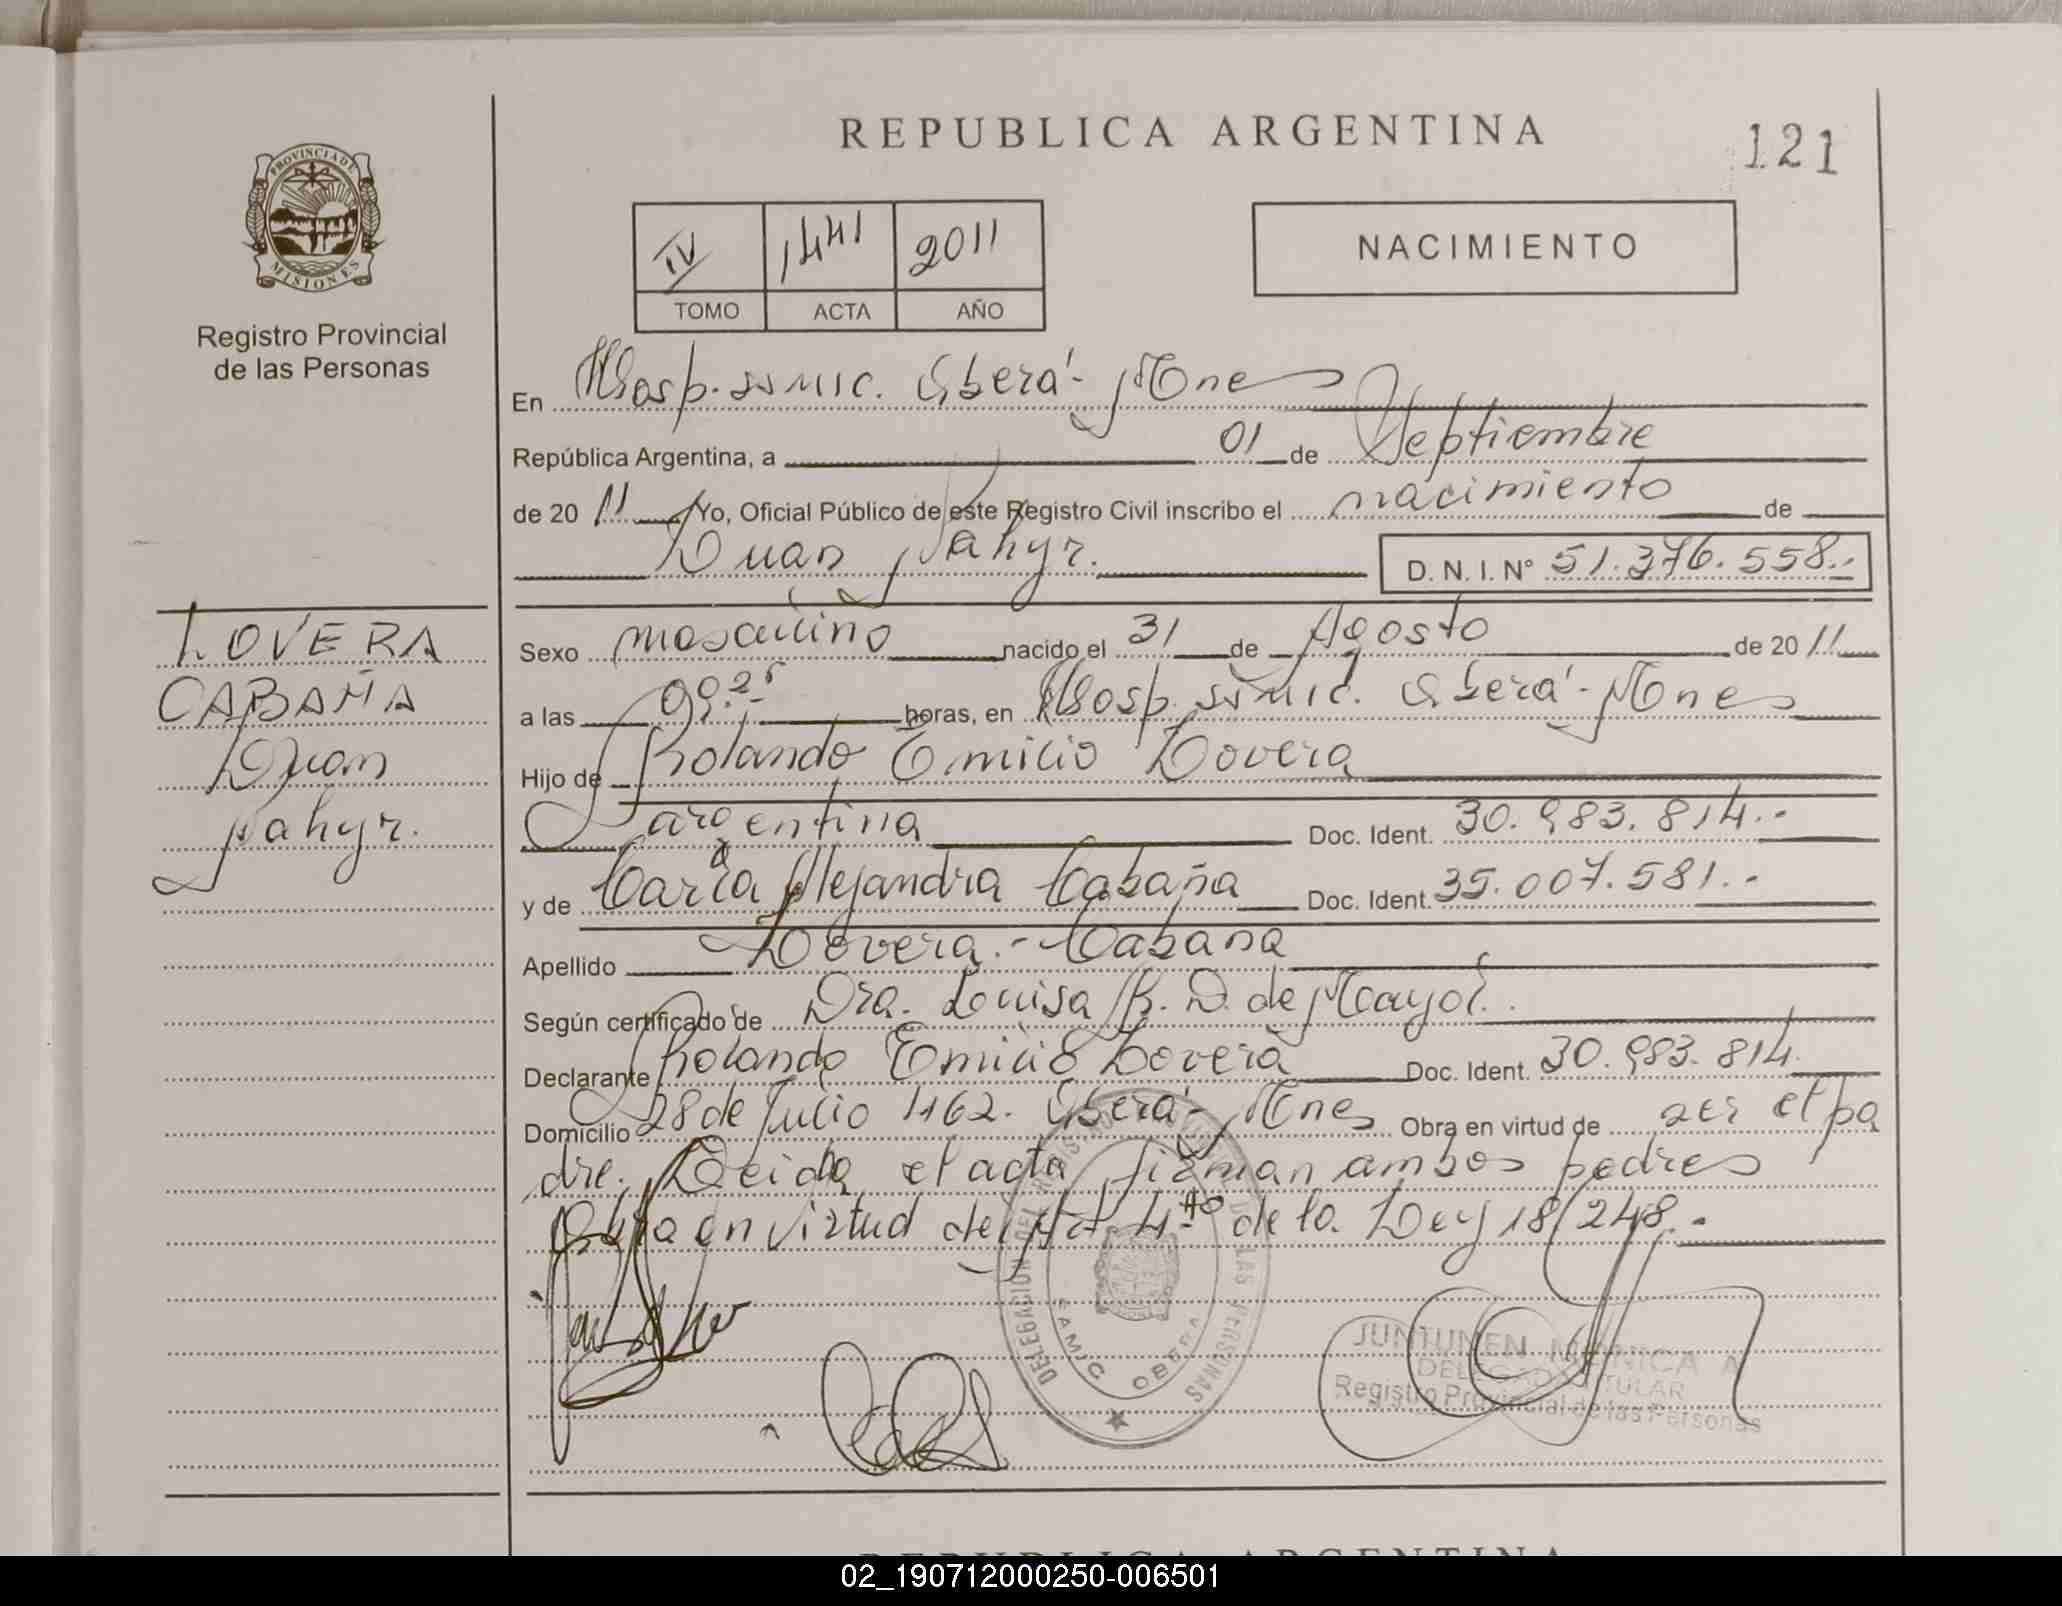 REPUBLICA ARGENTINA
121
PROVINCIA DE
MISIONES
Registro Provincial
de las Personas
IV 1441 2011
TOMO ACTA AÑO
NACIMIENTO
En Hosp. SAMIC. Oberá - Mnes
República Argentina, a 01 de Septiembre
de 20 11 Yo, Oficial Público de este Registro Civil inscribo el nacimiento de
Juan Nahyr. D. N. I. N° 51.376.558.-
LOVERA
CABAÑA
Juan
Nahyr.
Sexo masculino nacido el 31 de Agosto de 20 11
a las 09.25 horas, en Hosp. SAMIC. Oberá - Mnes
Hijo de Rolando Emilio Lovera
argentina Doc. Ident. 30.983.814.-
y de Carla Alejandra Cabaña Doc. Ident. 35.007.581.-
Apellido Lovera - Cabaña
Según certificado de Dra. Louisa B. D. de
Declarante Rolando Emilio Lovera Doc. Ident. 30.983.814
Domicilio 28 de Julio 1162. Oberá - Mnes Obra en virtud de ser el pa
dre. Leida el acta firman ambos padres
Obra en virtud del Art 4to de la Ley 18/248.-
DELEGACION DEL REGISTRO PROVINCIAL DE LAS PERSONAS
SAMIC OBERA
JUNTUNEN MONICA A
DELEGADA TITULAR
Registro Provincial de las Personas
REPUBLICA ARGENTINA
02_190712000250-006501